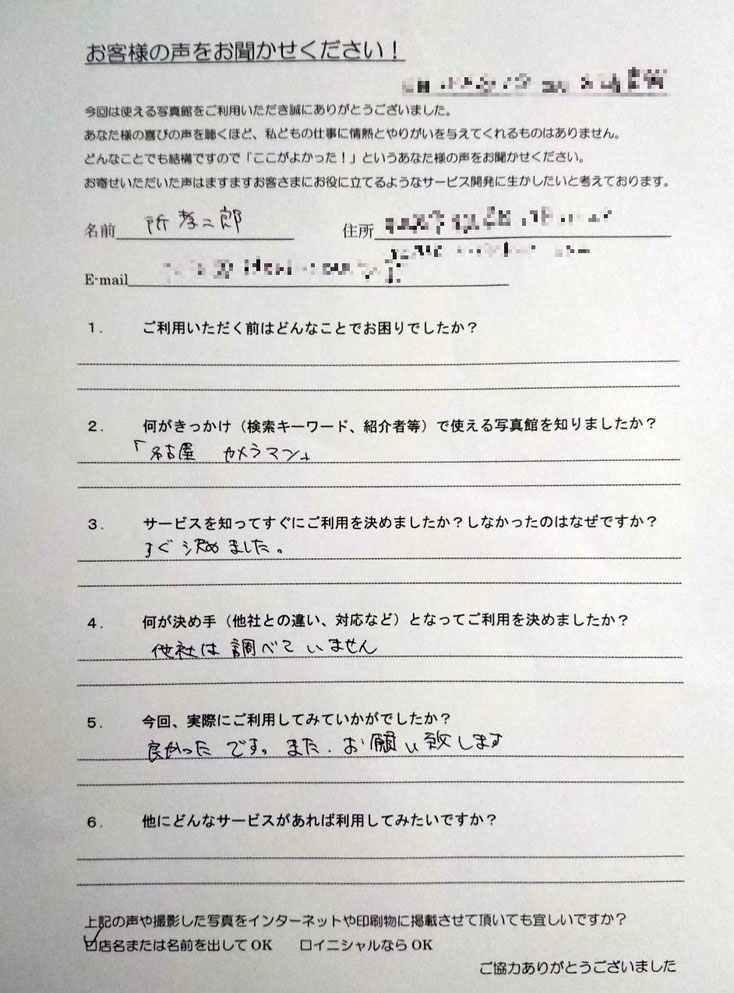 お客様の声をお聞かせください！
今回は使える写真館をご利用いただき誠にありがとうございました。
あなた様の喜びの声を聴くほど、私どもの仕事に情熱とやりがいを与えてくれるものはありません。
どんなことでも結構ですので「ここがよかった！」というあなた様の声をお聞かせください。
お寄せいただいた声はますますお客さまにお役に立てるようなサービス開発に生かしたいと考えております。
名前 所孝二郎 住所
E-mail
1. ご利用いただく前はどんなことでお困りでしたか？
2. 何がきっかけ（検索キーワード、紹介者等）で使える写真館を知りましたか？
「名古屋 カメラマン」
3. サービスを知ってすぐにご利用を決めましたか？しなかったのはなぜですか？
すぐ決めました。
4. 何が決め手（他社との違い、対応など）となってご利用を決めましたか？
他社は調べていません
5. 今回、実際にご利用してみていかがでしたか？
良かったです。また、お願い致します
6. 他にどんなサービスがあれば利用してみたいですか？
上記の声や撮影した写真をインターネットや印刷物に掲載させて頂いても宜しいですか？
☑店名または名前を出してOK □イニシャルならOK
ご協力ありがとうございました